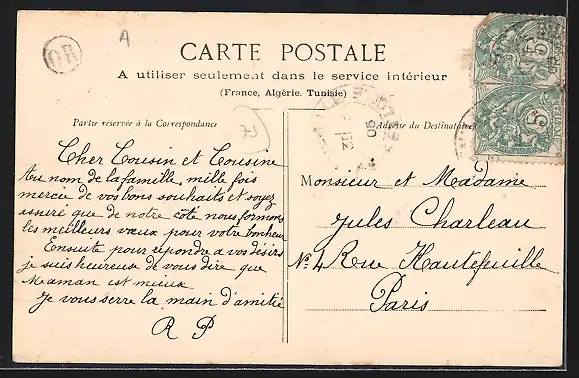 OR
A
CARTE POSTALE
A utiliser seulement dans le service intérieur
(France, Algérie, Tunisie)
Partie réservée à la Correspondance
Adresse du Destinataire
Cher Cousin et Cousine
Au nom de la famille mille fois
mercie de vos bons souhaits et soyez
assuré que de notre coté nous formons
les meilleurs vœux pour votre bonheur
Ensuite pour répondre a vos désirs
je suis heureuse de vous dire que
Maman est mieux
Je vous serre la main d'amitié
R P
Monsieur et Madame
Jules Charleau
No 4 Rue Hautefuille
Paris